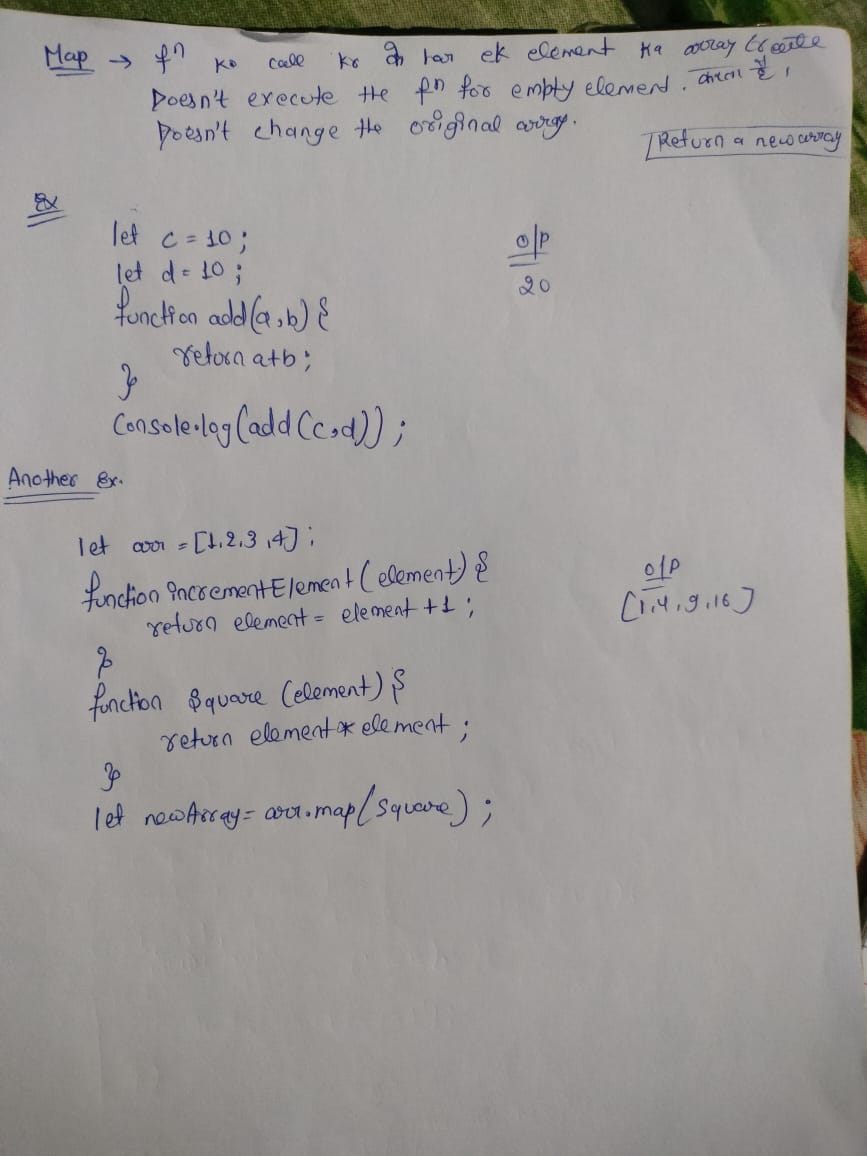 Map → fn ko call kr के har ek element ka array create
करता है।
Doesn't execute the fn for empty element.
Doesn't change the original array.
Return a new array
Ex
let c = 10;
let d = 10;
function add(a,b) {
return a+b;
}
Console.log(add(c,d));
o/p
20
Another Ex.
let arr = [1,2,3,4];
function incrementElement(element) {
return element = element +1;
}
function Square (element) {
return element * element;
}
let newArray = arr.map(Square);
o/p
[1,4,9,16]